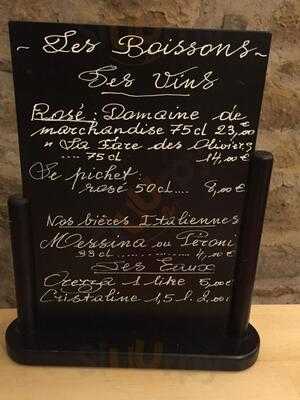 ~ Les Boissons ~
Les Vins
Rosé : Domaine de
marchandise 75cl 23,00
" La Fare des Oliviers
.... 75cl 14,00€
Le pichet :
rosé 50cl.... 8,00€
Nos bières Italiennes
Messina ou Péroni
33cl ................ 4,00€
Les Eaux
Orezza 1 litre 5,00€
Cristaline 1,5 l. 2,00€